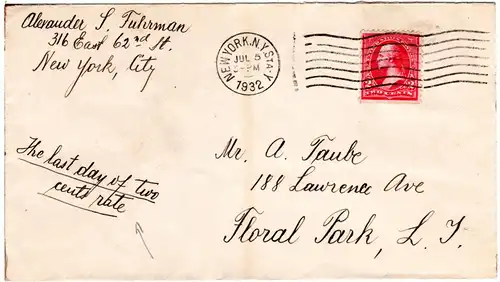 Alexander S. Fuhrman
316 East 62nd St.
New York, City
NEW YORK, N.Y. STA.
JUL 5
PM
1932
TWO CENTS
The last day of two
cents rate
Mr. A. Taube
188 Lawrence Ave
Floral Park, L. I.